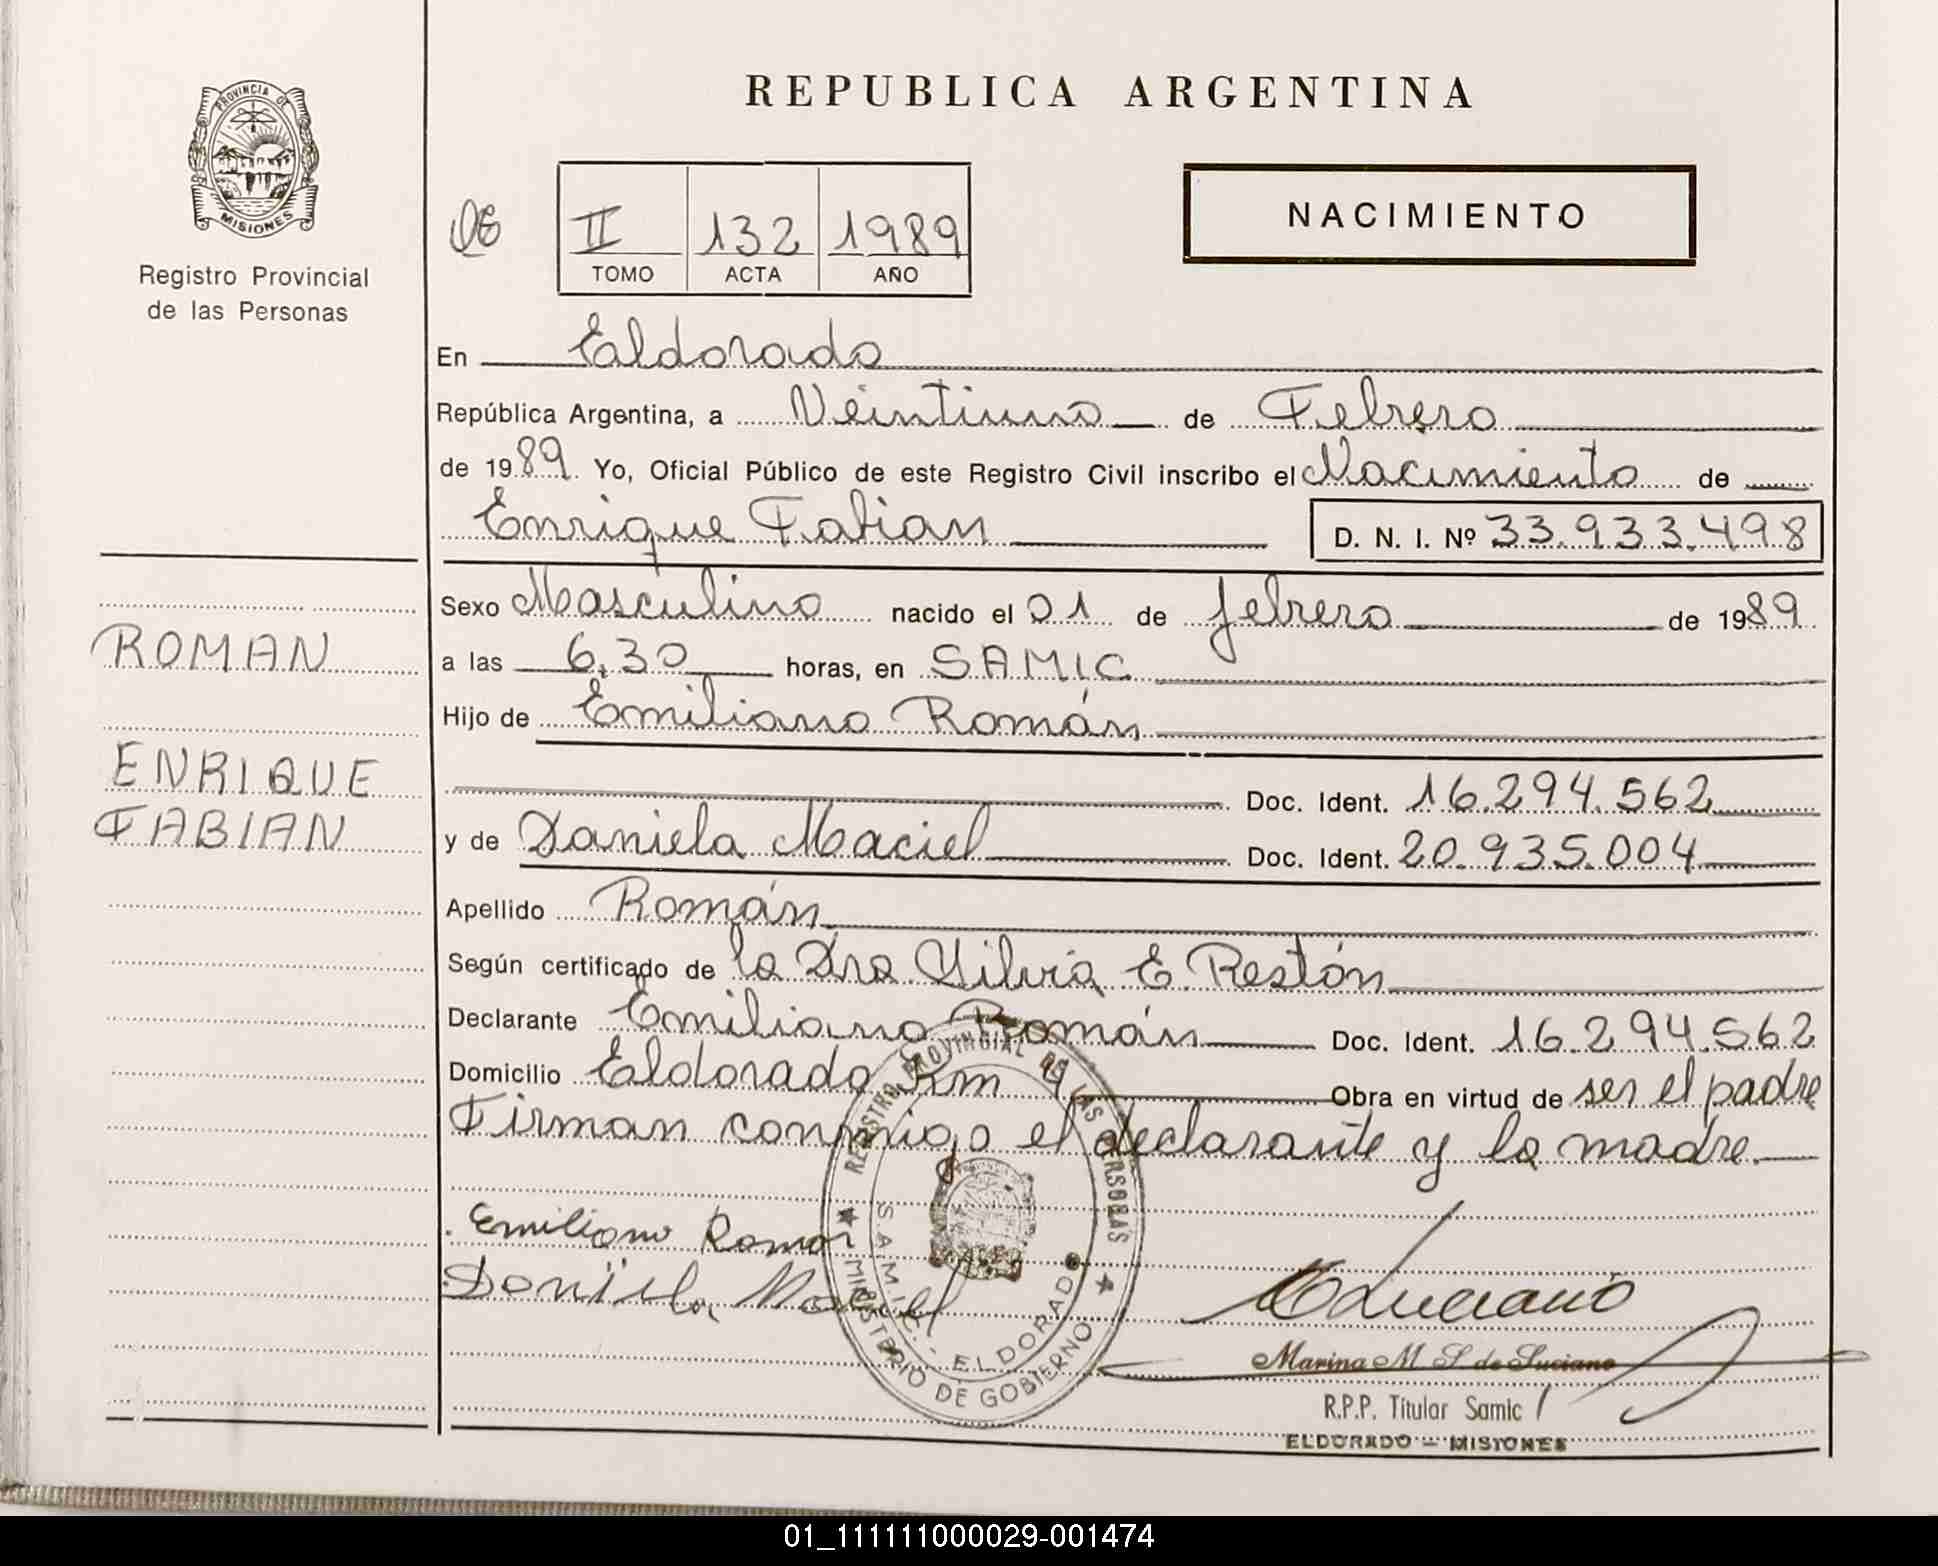 PROVINCIA DE
MISIONES
Registro Provincial
de las Personas
ROMAN
ENRIQUE
FABIAN
REPUBLICA ARGENTINA
II 132 1989
TOMO ACTA AÑO
NACIMIENTO
En Eldorado
República Argentina, a Veintiuno de Febrero
de 1989. Yo, Oficial Público de este Registro Civil inscribo el Nacimiento de
Enrique Fabian D. N. I. Nº 33.933.498
Sexo Masculino nacido el 01 de febrero de 1989
a las 6,30 horas, en SAMIC
Hijo de Emiliano Román
Doc. Ident. 16.294.562
y de Daniela Maciel Doc. Ident. 20.935.004
Apellido Román
Según certificado de la Dra Silvia E. Restón
Declarante Emiliano Román Doc. Ident. 16.294.562
Domicilio Eldorado Km 9 Obra en virtud de ser el padre
Firman conmigo el declarante y la madre.
Emiliano Roman
Daniela Maciel
REGISTRO PROVINCIAL DE LAS PERSONAS
S.A.M.I.C. - ELDORADO
MINISTERIO DE GOBIERNO
MLuciano
Marina M. S. de Luciano
R.P.P. Titular Samic
ELDORADO - MISIONES
01_111111000029-001474